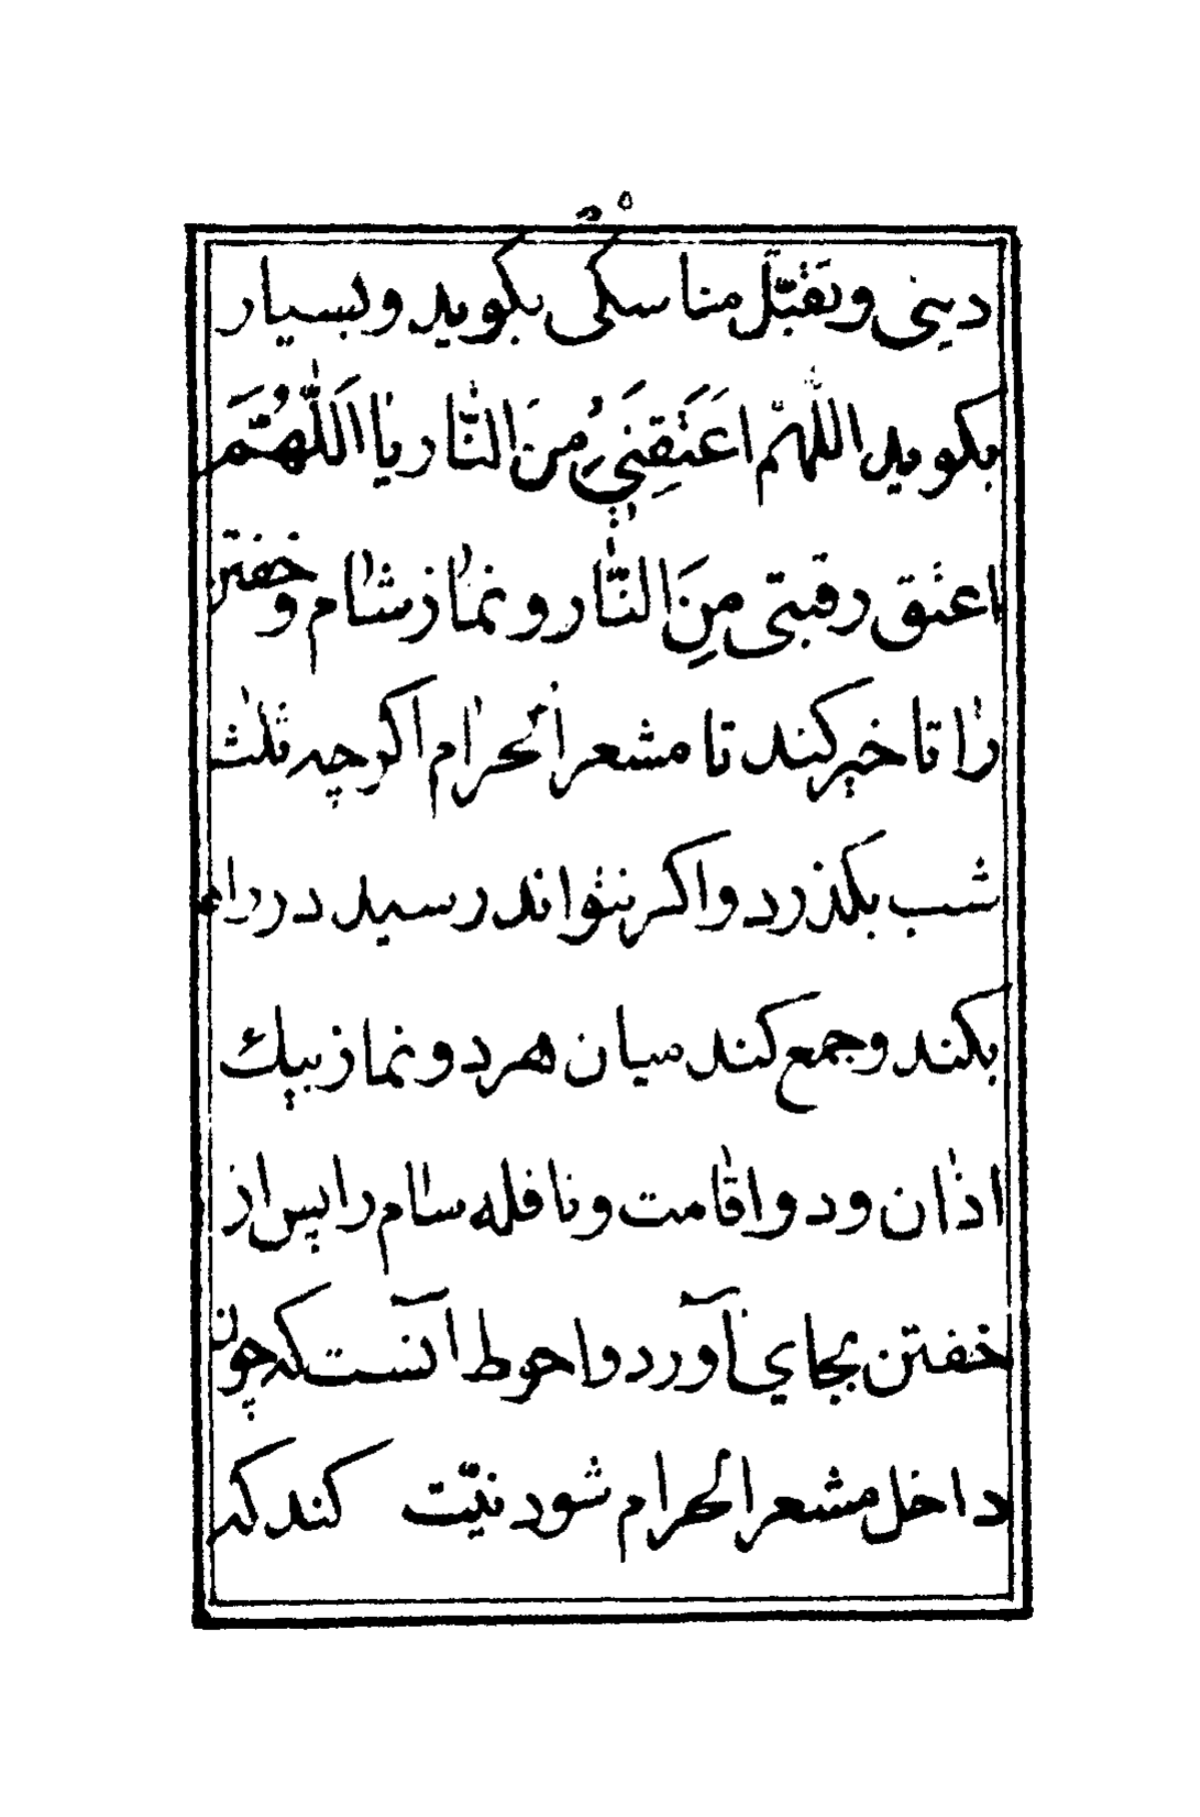 دینی وتَقَبَّل مناسکی بکوید وبسیار
بکوید اللّهّم اعَتَقِنیَ مِنَ النّار یا اَللّهُمَّ
اعتق رقبتی مِنَ النّار ونماز شام وخفتن
را تاخیر کند تا مشعر الحرام اکر چه ثلث
شب بکذرد واکر نتواند رسید در راه
بکند وجمع کند میان هر دو نماز بیك
اذان ودو اقامت ونافله شام را پس از
خفتن بجاي آورد واحوط آنست که چون
داخل مشعر الحرام شود نیّت کند که